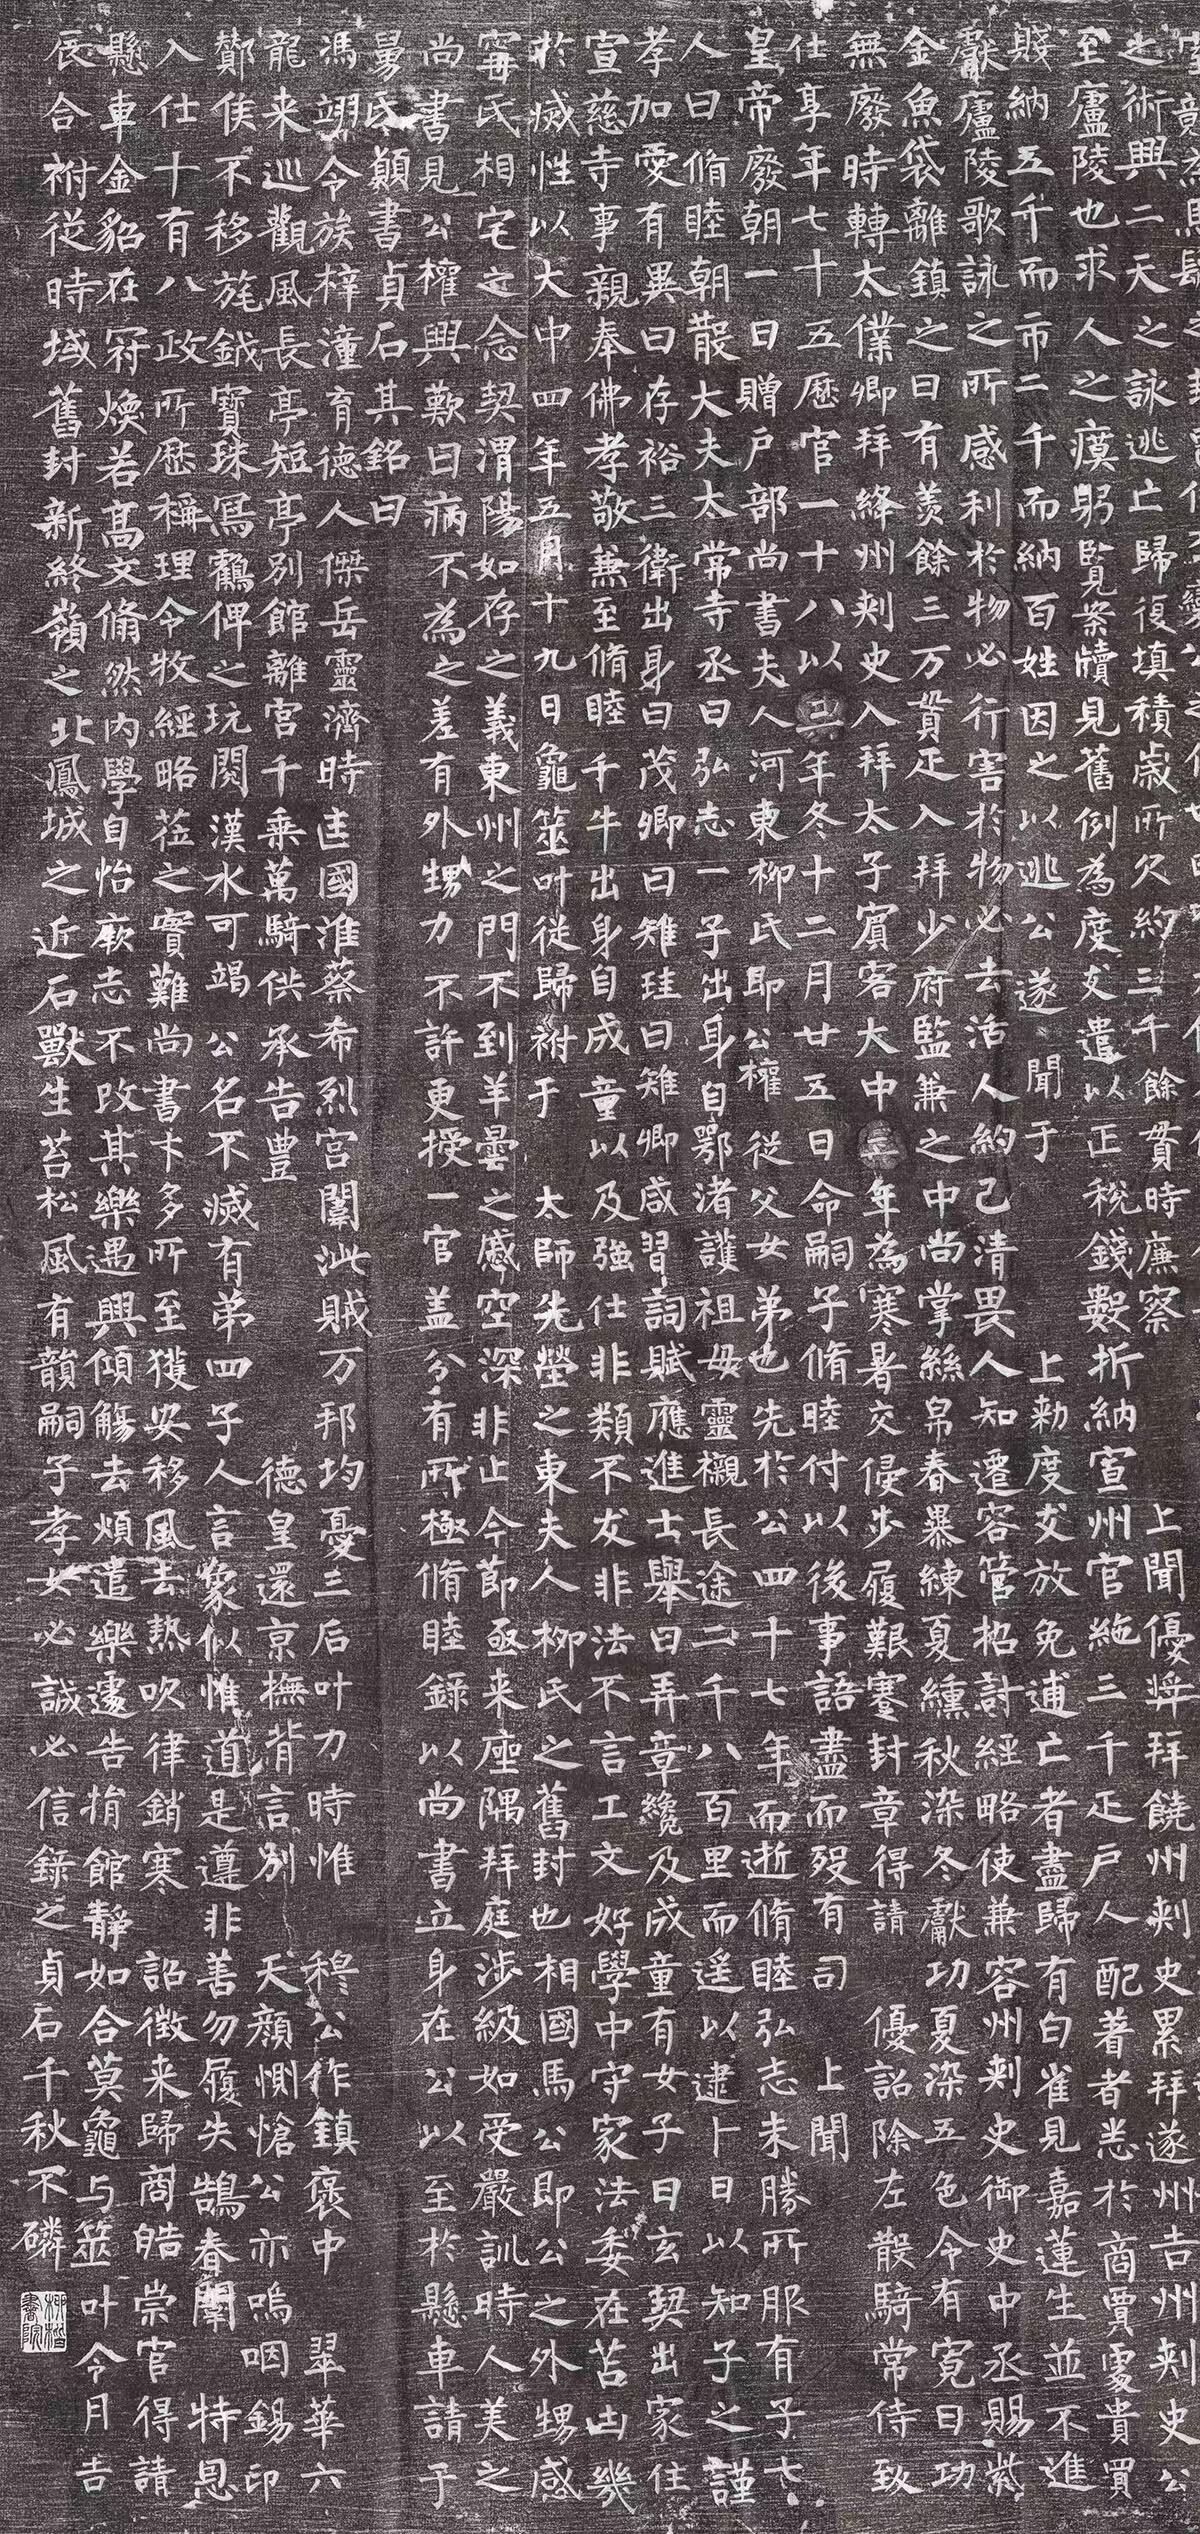 之術興二天之詠逃亡歸復填積歲所欠約三千餘貫時廉察 上聞優獎拜饒州刺史累拜遂州吉州刺史公
至廬陵也求人之瘼躬覧案牘見舊例為度支遣以正稅錢數折納宣州官絁三千疋户人配着者悉於商賈處貴買
賤納五千而市二千而納百姓因之以逃公遂 聞于 上勑度支放免逋亡者盡歸有白雀見嘉蓮生並不進
獻廬陵歌詠之所感利於物必行害於物必去活人約己清畏人知遷容管招討經略使兼容州刺史御史中丞賜紫
金魚袋離鎮之日有羨餘三万貫疋入拜少府監兼之中尚掌絲帛春暴練夏纁秋染冬獻功夏染五色令有寃日功
無廢時轉太僕卿拜絳州刺史入拜太子賓客大中三年為寒暑交侵步履艱蹇封章得請 優詔除左散騎常侍致
仕享年七十五歷官一十八以二年冬十二月廿五日命嗣子脩睦付以後事語盡而歿有司 上聞
皇帝廢朝一日贈户部尚書夫人河東柳氏即公權從父女弟也先於公四十七年而逝脩睦弘志未勝所服有子七
人曰脩睦朝散大夫太常寺丞曰弘志一子出身自鄂渚護祖母靈櫬長途二千八百里而遥以逮卜日以知子之謹
孝加愛有異曰存裕三衛出身曰茂卿曰雉珪曰雉卿咸習詞賦應進士舉曰弄章纔及成童有女子曰玄契出家住
宣慈寺事親奉佛孝敬兼至脩睦千牛出身自成童以及強仕非類不友非法不言工文好學中守家法委在苫凷幾
於滅性以大中四年五月十九日龜筮叶從歸祔于 太師先塋之東夫人柳氏之舊封也相國馬公即公之外甥感
甯氏相宅之念契渭陽如存之義東州之門不到羊曇之慼空深非止今節亟来座隅拜庭涉級如受嚴訓時人美之
尚書見公權興歎曰病不為之差有外甥力不許更授一官盖分有所極脩睦錄以尚書立身在公以至於懸車請于
舅氏顓書貞石其銘曰
馮翊令族梓潼育德人傑岳靈濟時匡國淮蔡希烈宫闈泚賊万邦均憂三后叶力時惟 穆公作鎮褒中 翠華六
龍来巡觀風長亭短亭別館離宫千乘萬騎供承告豊 德皇還京撫背言別 天顔惻愴公亦嗚咽錫印
鄼侯不移旄鉞寶珠寫鸖俾之玩閲漢水可竭 公名不滅有弟四子人言象似惟道是遵非善勿履失鵠春闈 特恩
入仕十有八政所歷稱理今牧經略莅之實難尚書卞多所至獲安移風去熱吹律銷寒 詔徴来歸商皓崇官得請
懸車金貂在筓煥若髙文翛然内學自怡厥志不改其樂遇興傾觴去煩遣樂遽告捐館靜如合莫龜与筮叶令月吉
辰合祔從時域舊封新終嶺之北鳳城之近石獸生苔松風有韻嗣子孝女必誠必信錄之貞石千秋不磷
柳楷書院